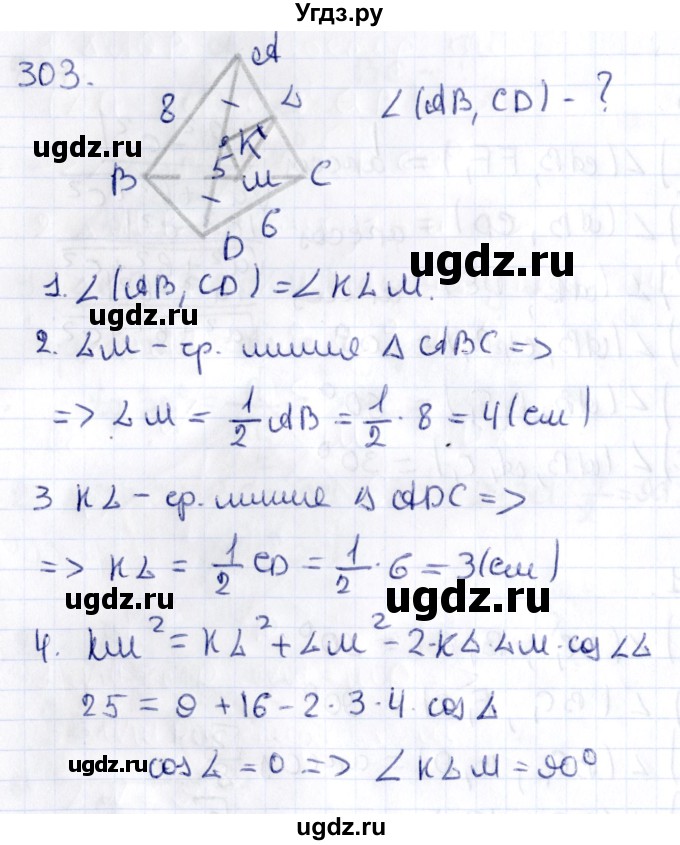 Угдз.ру
303.
A
8
L
∠(AB, CD) - ?
ugdz.ru
K
5
B
M
C
6
D
ugdz.ru
1. ∠(AB, CD) = ∠KLM.
ugdz.ru
2. LM - ср. линия Δ ABC =>
=> LM = 1/2 AB = 1/2 · 8 = 4 (см)
ugdz.ru
3 KL - ср. линия Δ ADC =>
=> KL = 1/2 CD = 1/2 · 6 = 3 (см)
ugdz.ru
ugdz.ru
4. KM² = KL² + LM² - 2·KL·LM·cos∠L
25 = 9 + 16 - 2·3·4·cos L
ugdz.ru
cos L = 0 => ∠KLM = 90°
ugdz.ru
ugdz.ru